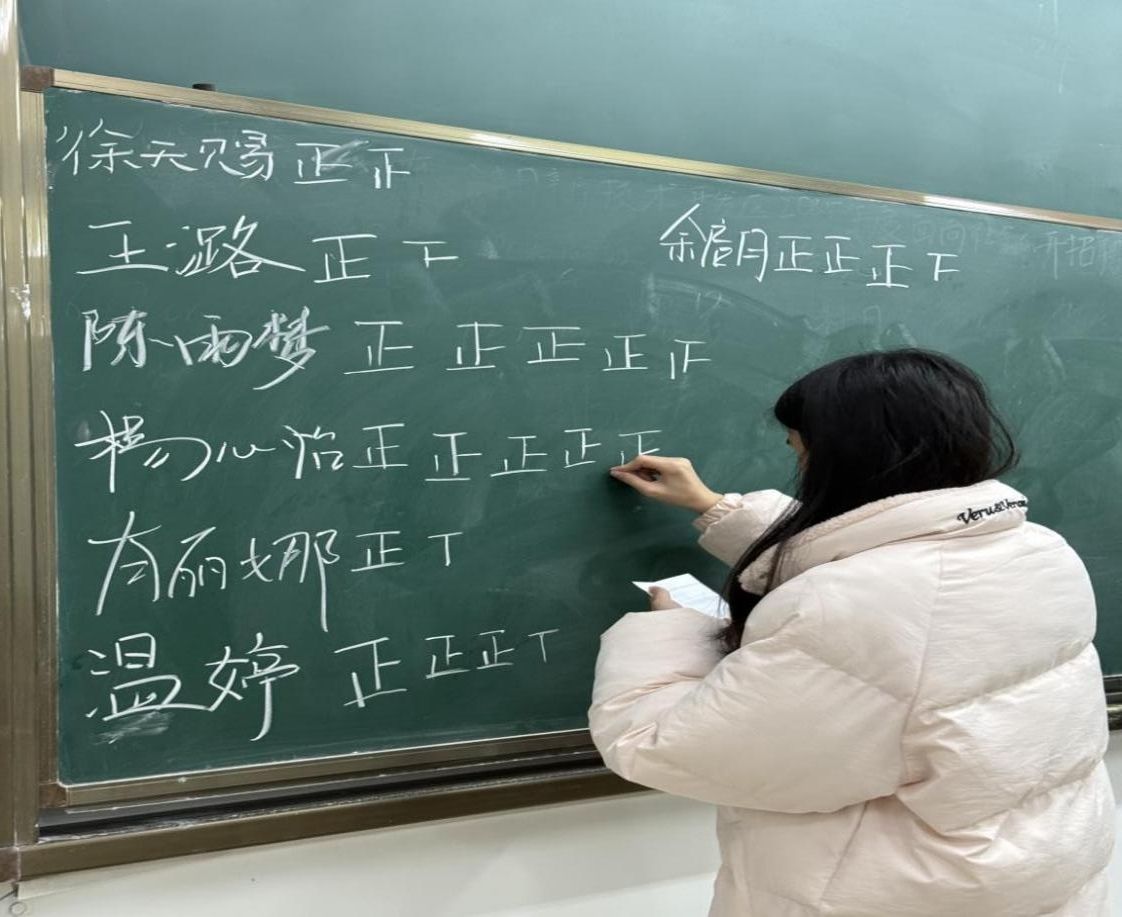 徐天赐 正 正
王潞 正 下
余启月 正 正 正 下
陈雨梦 正 正 正 正 正
杨心治 正 正 正 正 正
丽娜 正 丅
温婷 正 正 正 丅
Veru&Verou